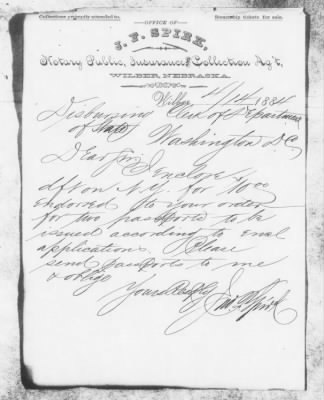 Collections promptly attended to.
Steamship tickets for sale.
OFFICE OF
J. F. SPIRK,
Notary Public, Insurance and Collection Ag't,
WILBER, NEBRASKA.
Wilber 4/14 1884
Disbursing Clerk of Department
of State
Washington D C
Dear Sir I enclose
dft on N.Y. for 10 00
Endorsed to your order
for two passports to be
issued according to encl
applications. Please
send passports to me
& oblige
Yours Resply
Spirk